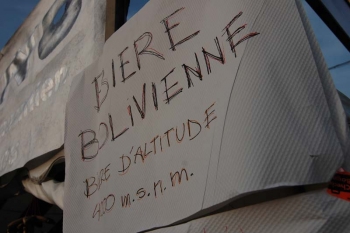 BIERE
BOLIVIENNE
BIRE D'ALTITUDE
400 m.s.n.m.